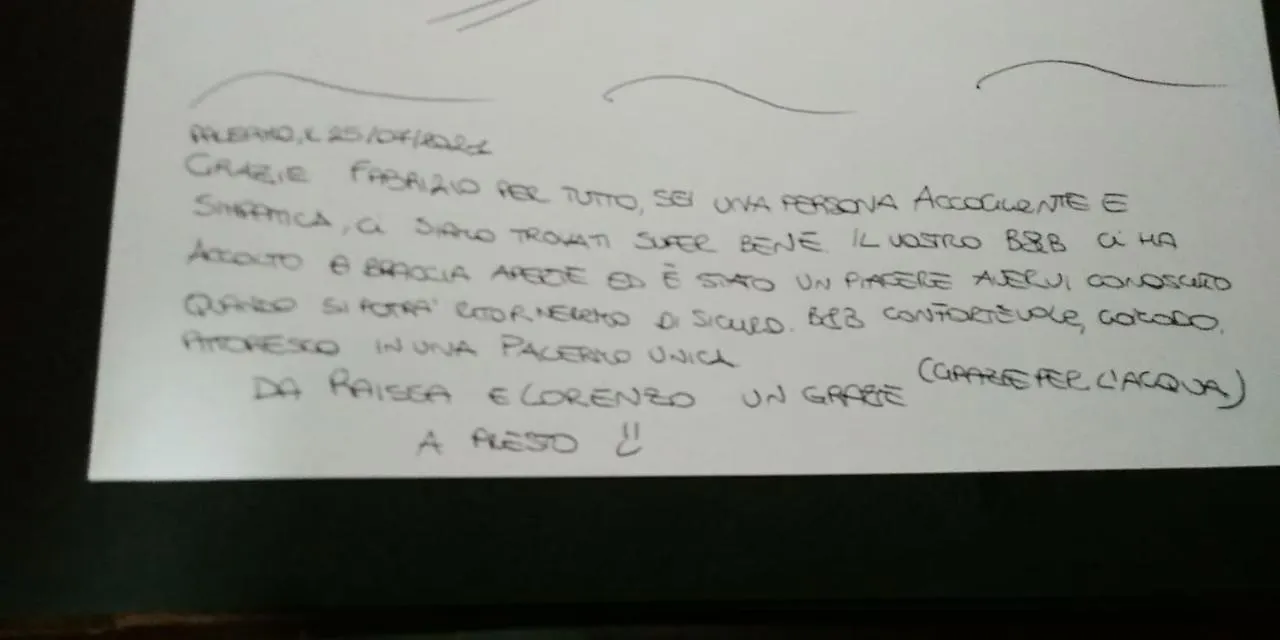 PALERMO, IL 25/07/2021
GRAZIE FABRIZIO PER TUTTO, SEI UNA PERSONA ACCOGLIENTE E
SIMPATICA, CI SIAMO TROVATI SUPER BENE. IL VOSTRO B&B CI HA
ACCOLTO A BRACCIA APERTE ED È STATO UN PIACERE AVERVI CONOSCIUTO
QUANDO SI POTRÀ RITORNEREMO DI SICURO. B&B CONFORTEVOLE, COMODO,
PITTORESCO IN UNA PALERMO UNICA
(GRAZIE PER L'ACQUA)
DA RAISSA E LORENZO UN GRAZIE
A PRESTO